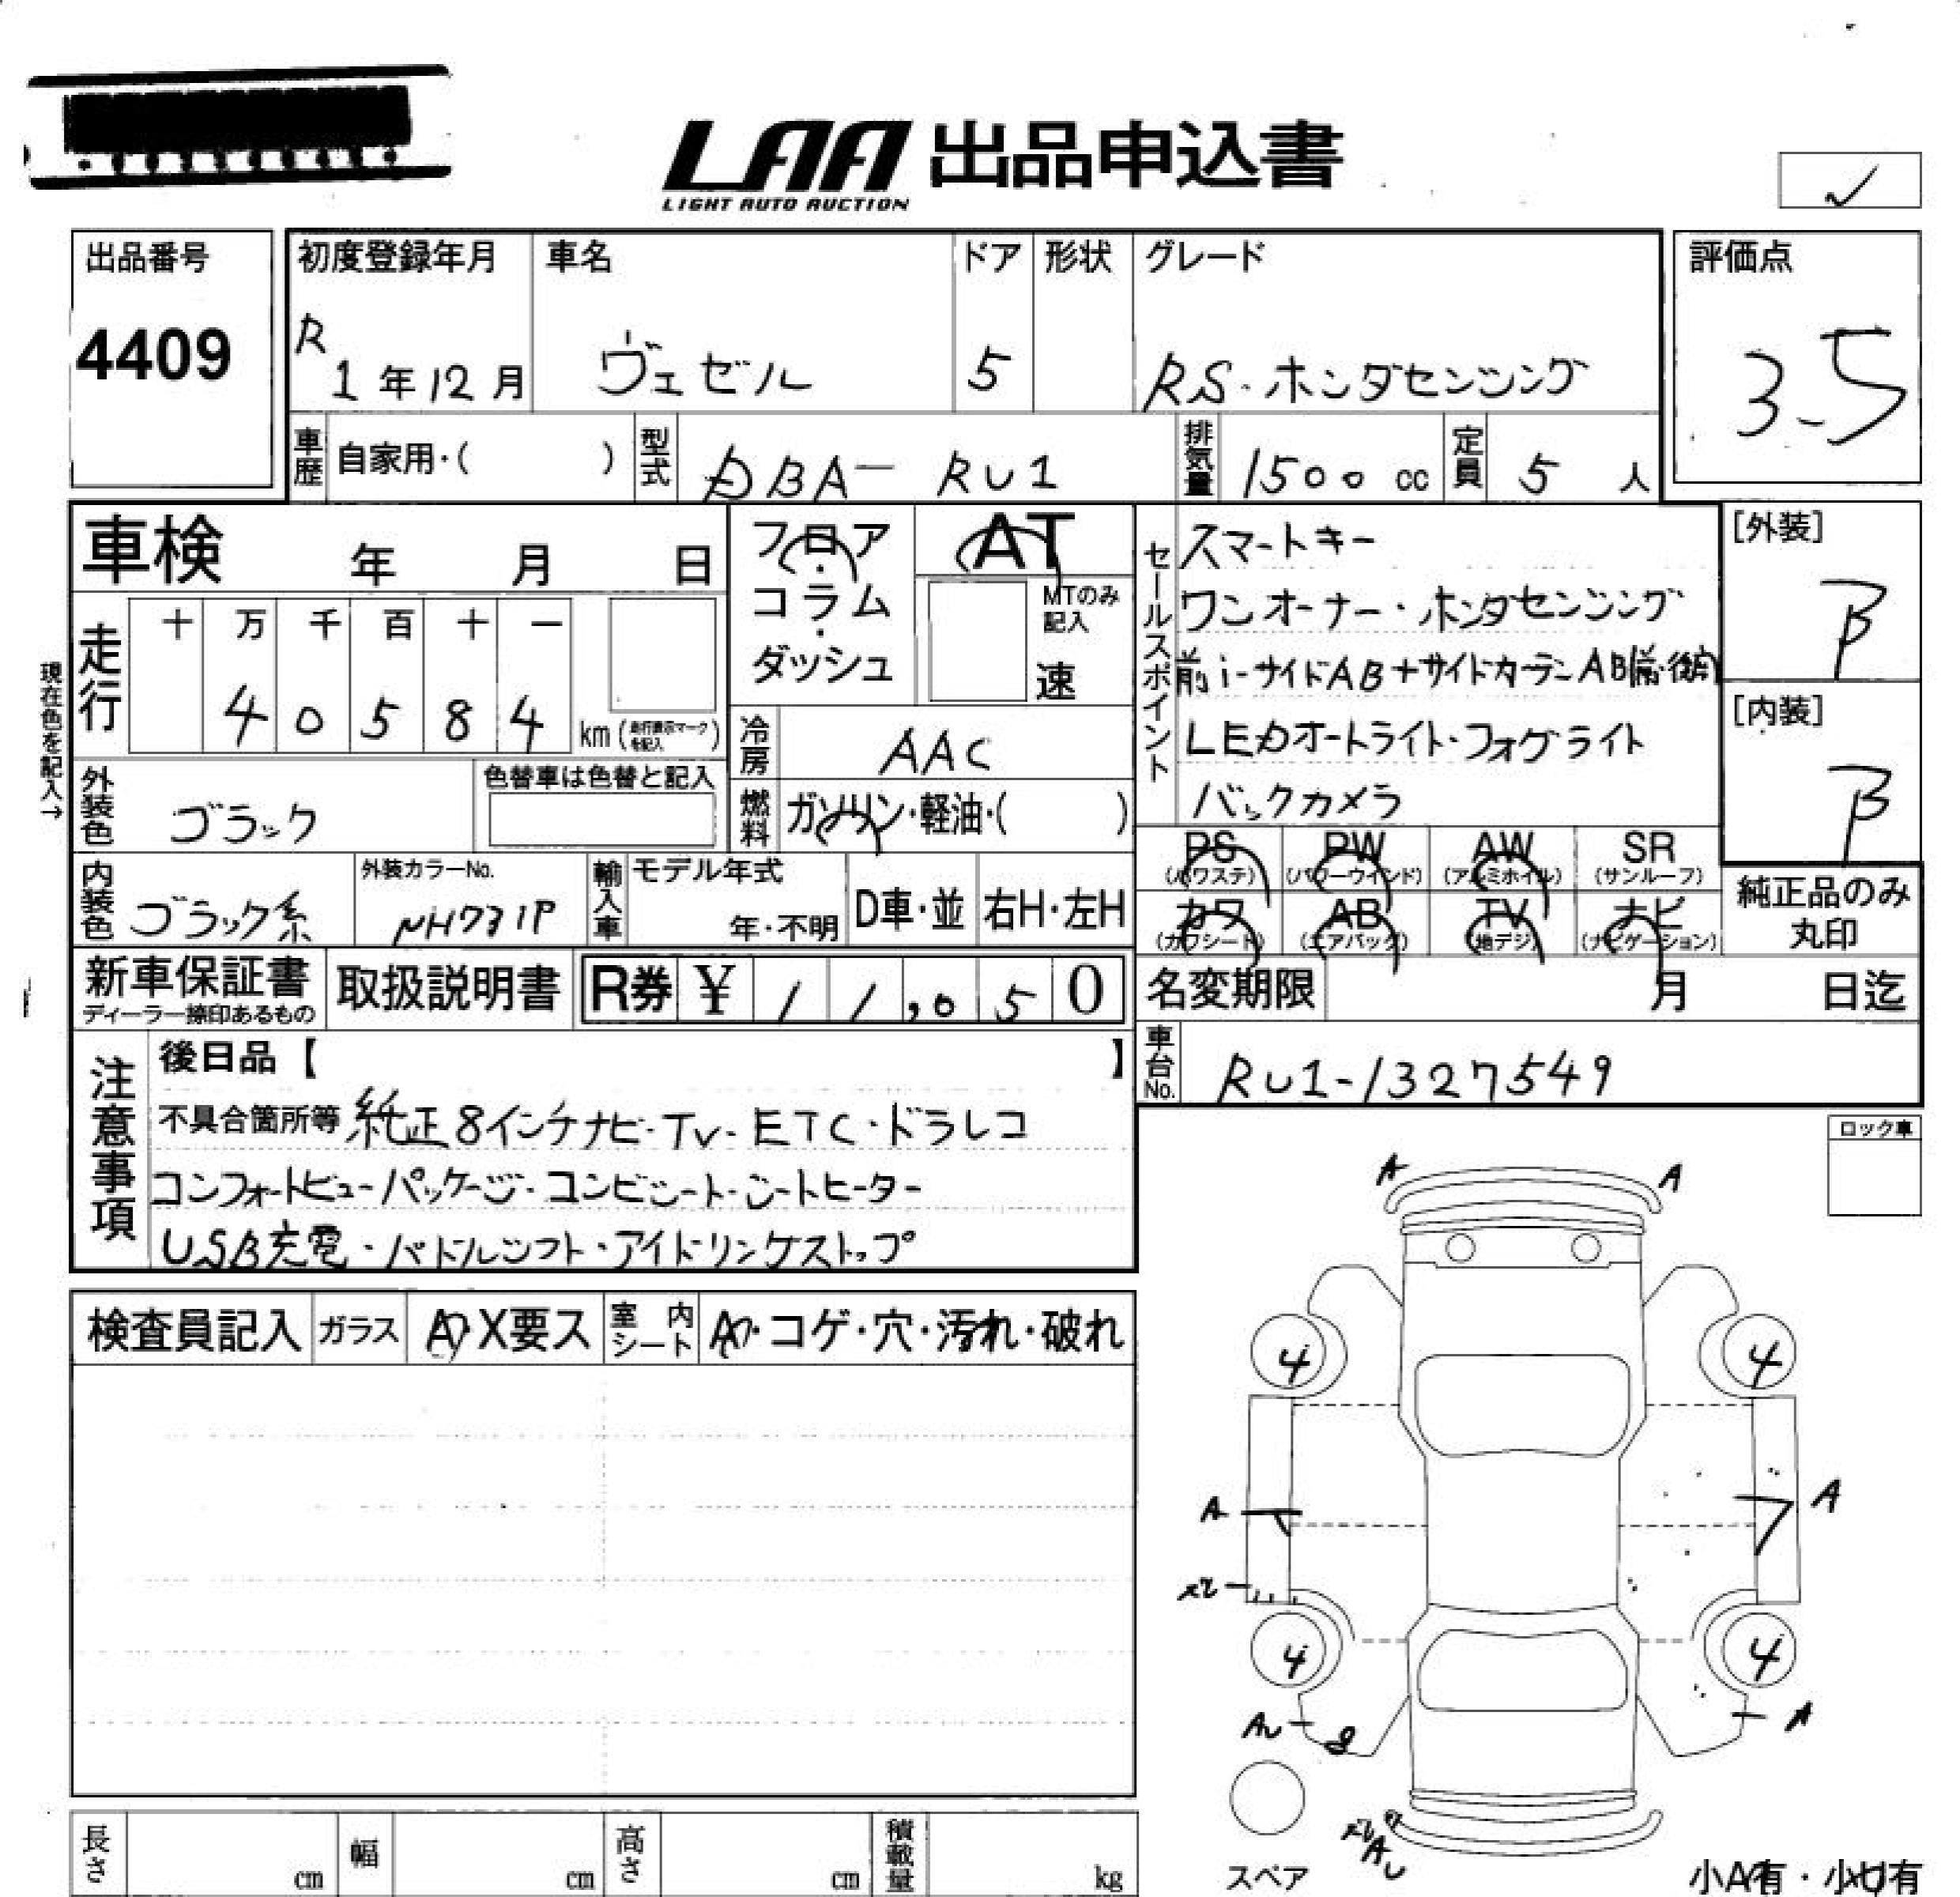 LAA 出品申込書
LIGHT AUTO AUCTION
✓
出品番号
4409
初度登録年月
R
1年12月
車名
ヴェゼル
ドア
5
形状
グレード
RS・ホンダセンシング
評価点
3.5
車歴 自家用・( )
型式 DBA-RU1
排気量 1500 cc
定員 5 人
車検 年 月 日
フロア・コラム・ダッシュ
AT
MTのみ記入
速
現在色を記入→
走行
十 万 千 百 十 一
4 0 5 8 4
km
冷房 AAC
外装色 ブラック
色替車は色替と記入
燃料 ガソリン・軽油・( )
内装色 ブラック系
外装カラーNo.
NH731P
輸入車
モデル年式
年・不明
D車・並
右H・左H
セールスポイント
スマートキー
ワンオーナー・ホンダセンシング
前i-サイドAB+サイドカーテンAB
LEDオートライト・フォグライト
バックカメラ
[外装]
B
[内装]
B
PS (パワステ)
PW (パワーウインド)
AW (アルミホイル)
SR (サンルーフ)
カワ (カワシート)
AB (エアバック)
TV (地デジ)
ナビ (ナビゲーション)
純正品のみ
丸印
新車保証書
ディーラー捺印あるもの
取扱説明書
R券 ¥ 11,050
名変期限 月 日迄
車台No. RU1-1327549
注意事項
後日品【 】
不具合箇所等 純正8インチナビ・TV・ETC・ドラレコ
コンフォートビューパッケージ・コンビシート・シートヒーター
USB充電・パドルシフト・アイドリングストップ
ロック車
A A
検査員記入
ガラス
A・X要ス
室内シート
A・コゲ・穴・汚れ・破れ
4 4
A A
4 4
AU A
AU
スペア
小A有・小U有
長さ cm
幅 cm
高さ cm
積載量 kg